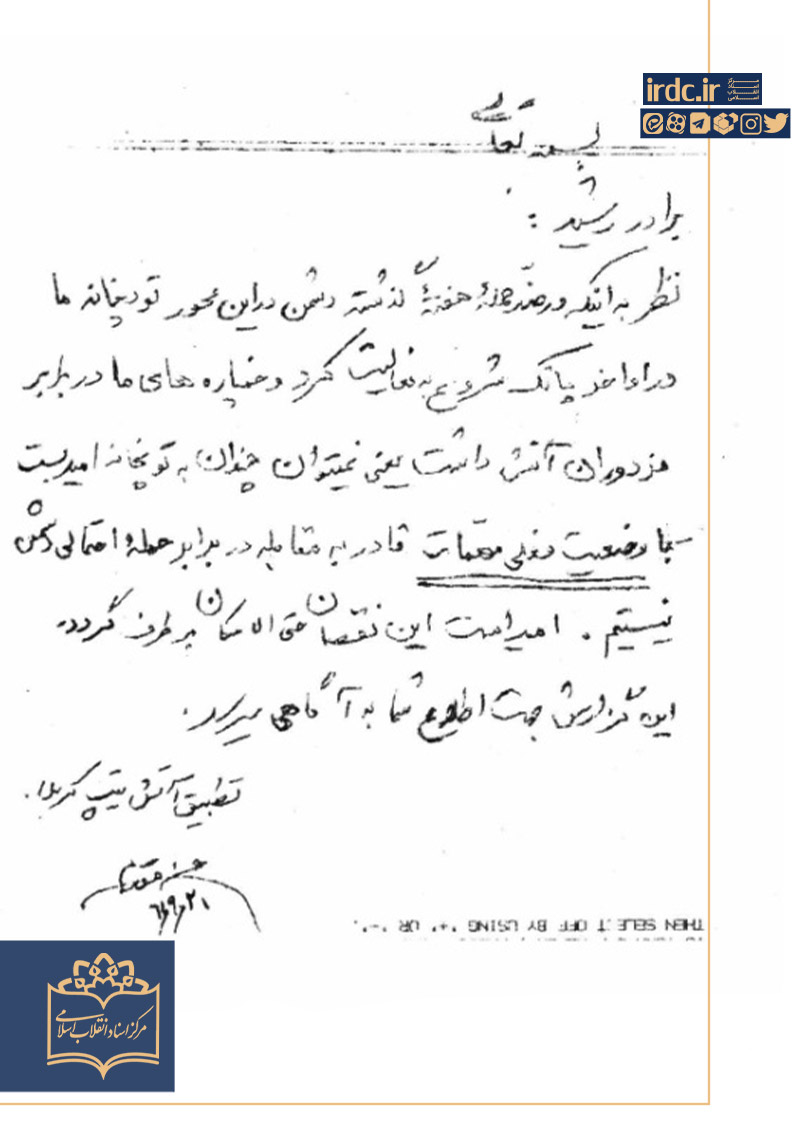 irdc.ir
مرکز
اسناد
انقلاب
اسلامی
بسمه تعالی
برادر رشید :
نظر به اینکه در ضد حملهٔ هفتهٔ گذشته دشمن در این محور توپخانه ما
در اواخر پاتک شروع به فعالیت کرد و خمپاره های ما در برابر
مزدوران آتش داشت یعنی نمیتوان چندان به توپخانه امید بست
با وضعیت فعلی مهمات قادر به مقابله در برابر حملهٔ احتمالی دشمن
نیستیم . امید است این نقصان حتی الامکان برطرف گردد.
این گزارش جهت اطلاع شما به آگاهی میرسد .
تطبیق آتش تیپ کربلا .
حسن مقدم
THEN SELE T OFF BY USING '+' OR '-'.
مرکز اسناد انقلاب اسلامی